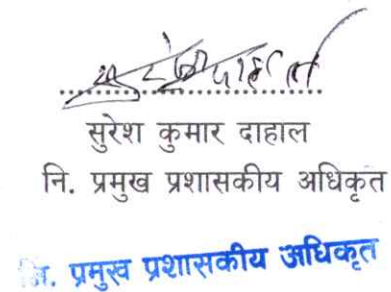 सुरेश कुमार दाहाल
नि. प्रमुख प्रशासकीय अधिकृत
नि. प्रमुख प्रशासकीय अधिकृत